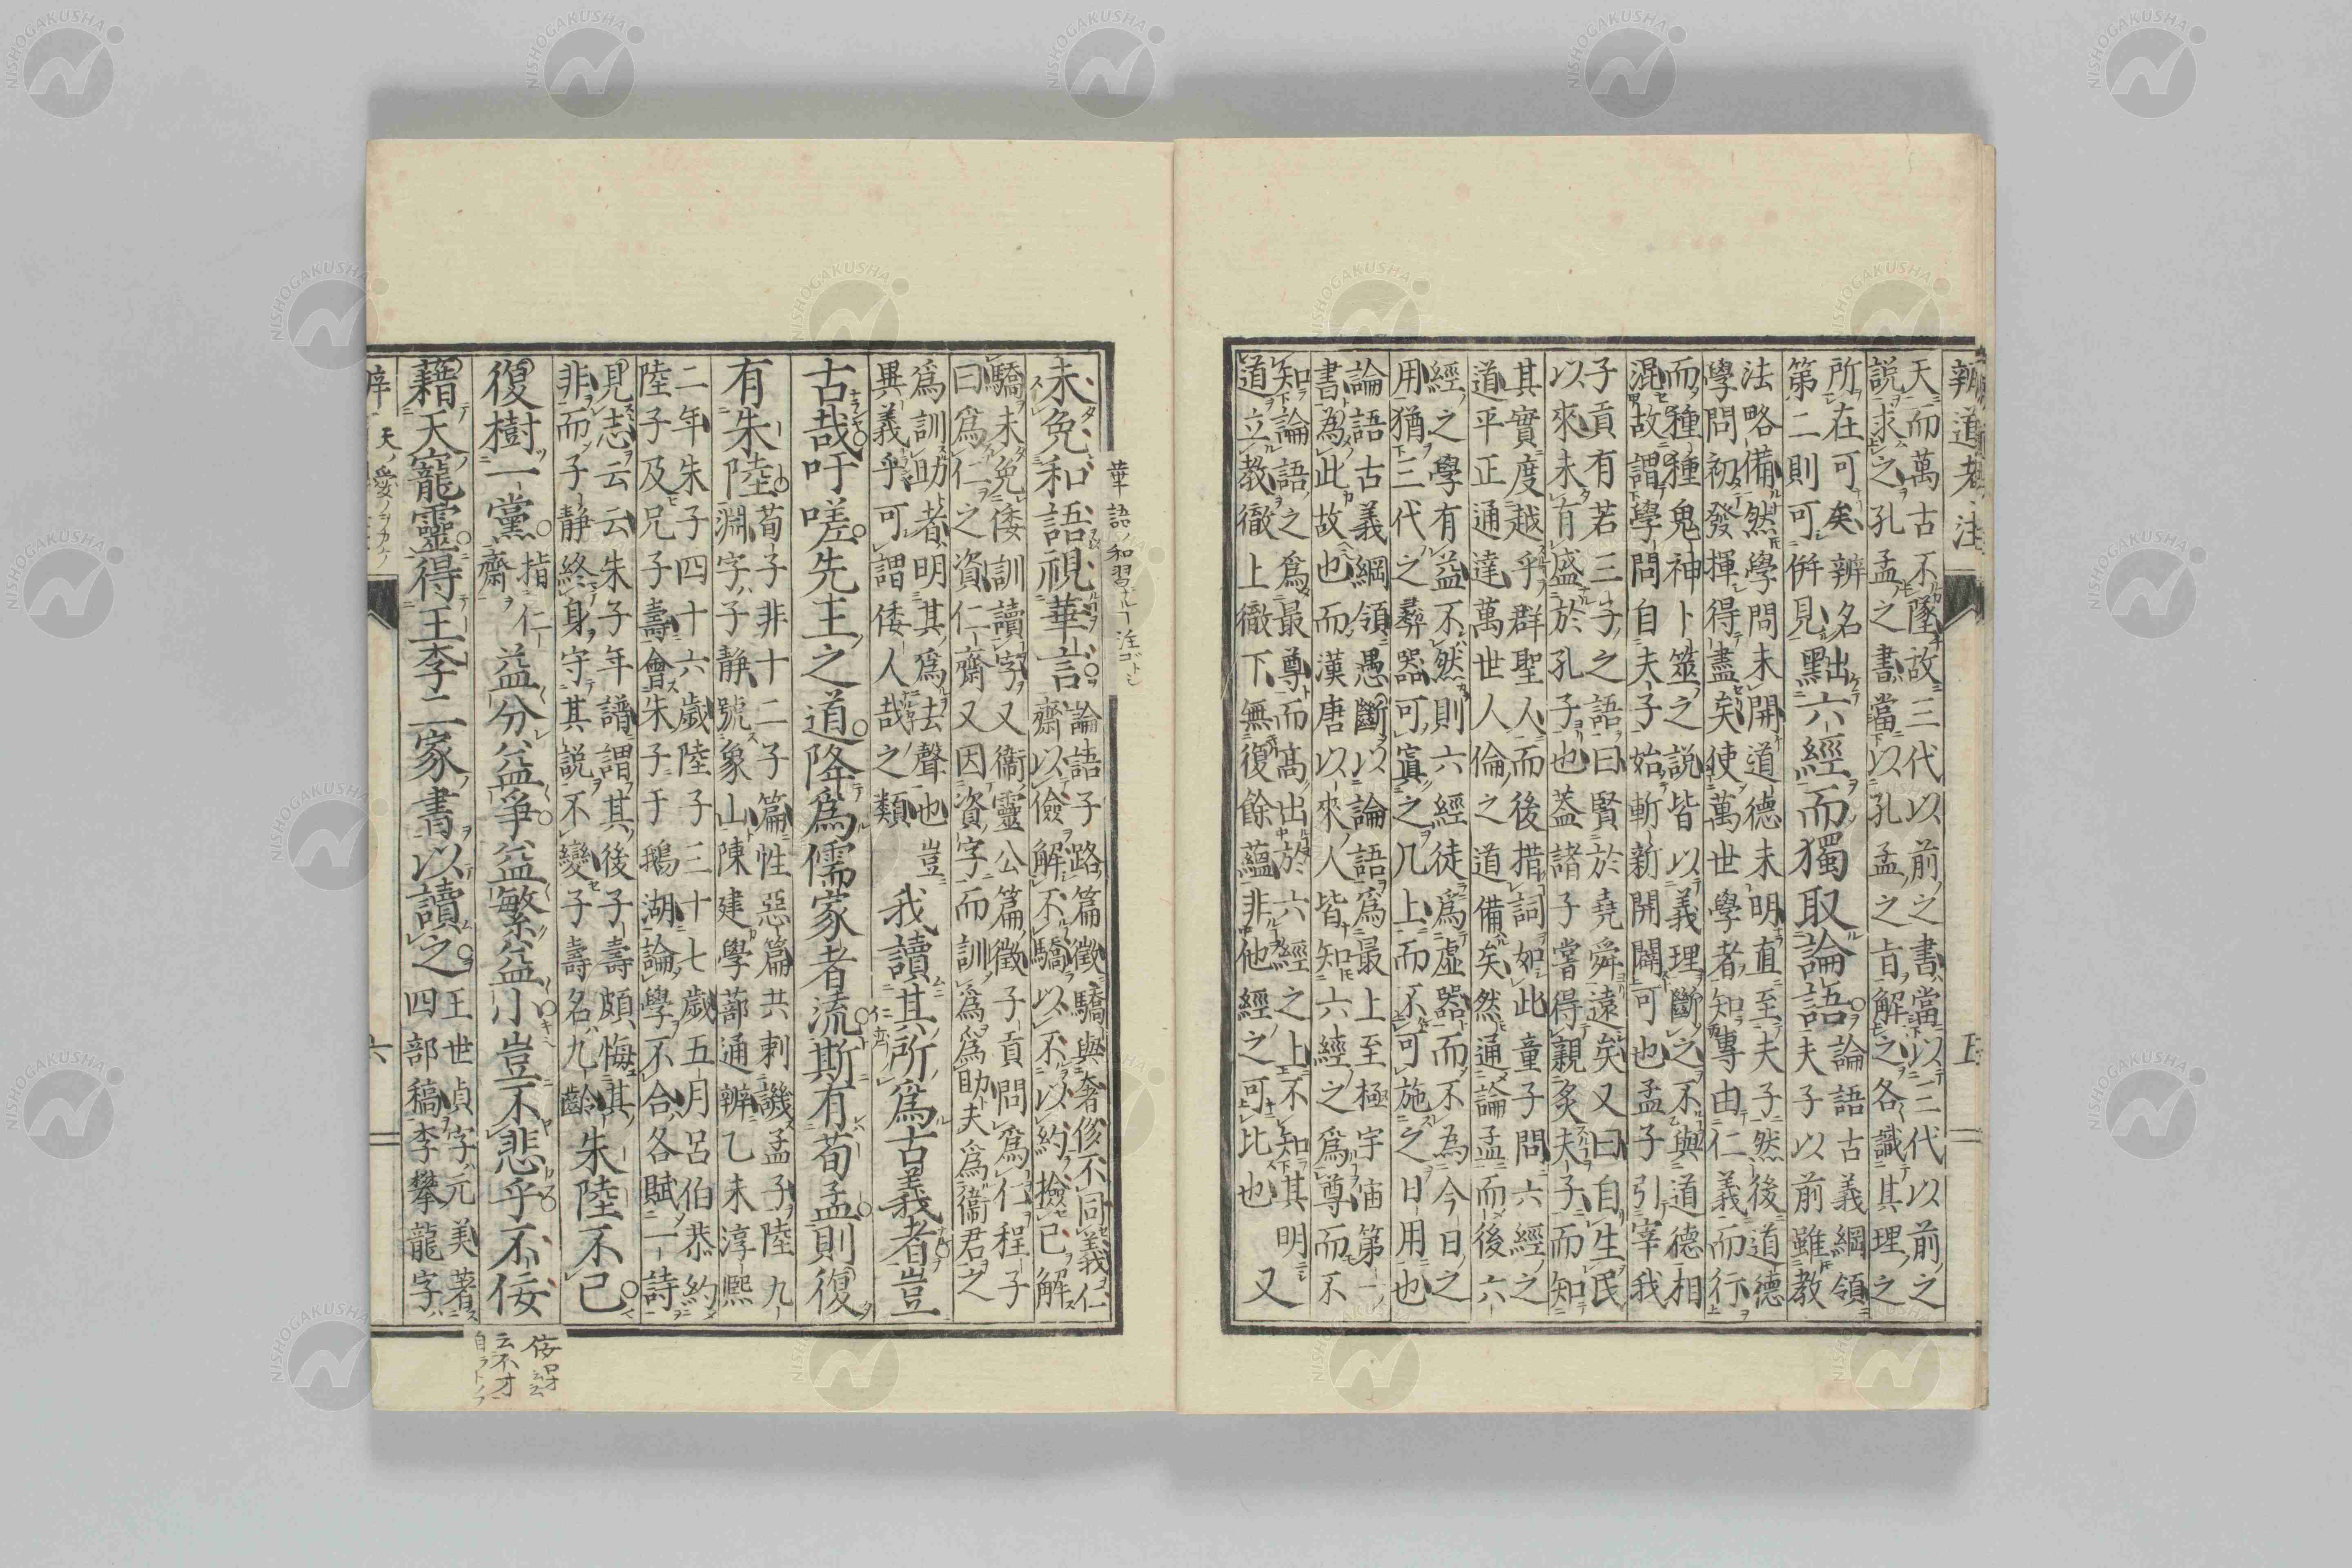 辨道考注
天而萬古不墜故三代以前之書當以二代以前之
說求之孔孟之書當以孔孟之旨解之各識其理之
所在可矣辨名出六經而獨取論語論語古義綱領
第二則可併見黜 夫子以前雖教
法略備然學問未開道德未明直至夫子然後道德
學問初發揮得盡矣使萬世學者知專由仁義而行
而種種鬼神卜筮之說皆以義理斷之不與道德相
混故謂學問自夫子始斬新開闢可也孟子引宰我
子貢有若三子之語曰賢於堯舜遠矣又曰自生民
以來未有盛於孔子也蓋諸子嘗得親炙夫子而知
其實度越乎群聖人而後措詞如此童子問六經之
道平正通達萬世人倫之道備矣然通論孟而後六
經之學有益不然則六經徒爲虛器而不為今日之
用猶三代之彝器可寘之几上而不可施之日用也
論語古義綱領愚斷以論語爲最上至極宇宙第一
書為此故也而漢唐以來人皆知六經之爲尊而不
知論語之爲最尊而高出於六經之上不知其明
道立教徹上徹下無復餘蘊非他經之可比也 又
五
未免和語視華言論語子路篇徵驕與奢侈不同義仁
齋以儉解不驕以不以約撿己解
驕未免倭訓讀字又衞靈公篇徵子貢問爲仁程子
曰爲仁之資仁齋又因資字而訓爲爲助夫爲衞君之
爲訓助者明其爲去聲也豈
異義乎可謂倭人哉之類 我讀其所爲古義者豈
古哉吁嗟先王之道降爲儒家者流斯有荀孟則復
有朱陸荀子非十二子篇性惡篇共刺譏孟子陸九
淵字子靜號象山陳建學蔀通辨乙未淳熙
二年朱子四十六歲陸子三十七歲五月呂伯恭約
陸子及兄子壽會朱子于鵝湖論學不合各賦一詩
見志云云朱子年譜謂其後子壽頗悔其
非而子靜終身守其說不變子壽名九齡 朱陸不已
復樹一黨指仁
齋 益分益爭益繁益小豈不悲乎不佞
藉天寵靈得王李二家書以讀之王世貞字元美著
四部稿李攀龍字
六
華語ノ和習ナルヿ注ゴトシ
仁齊
天ノ愛
佞口才云云
云不才
自